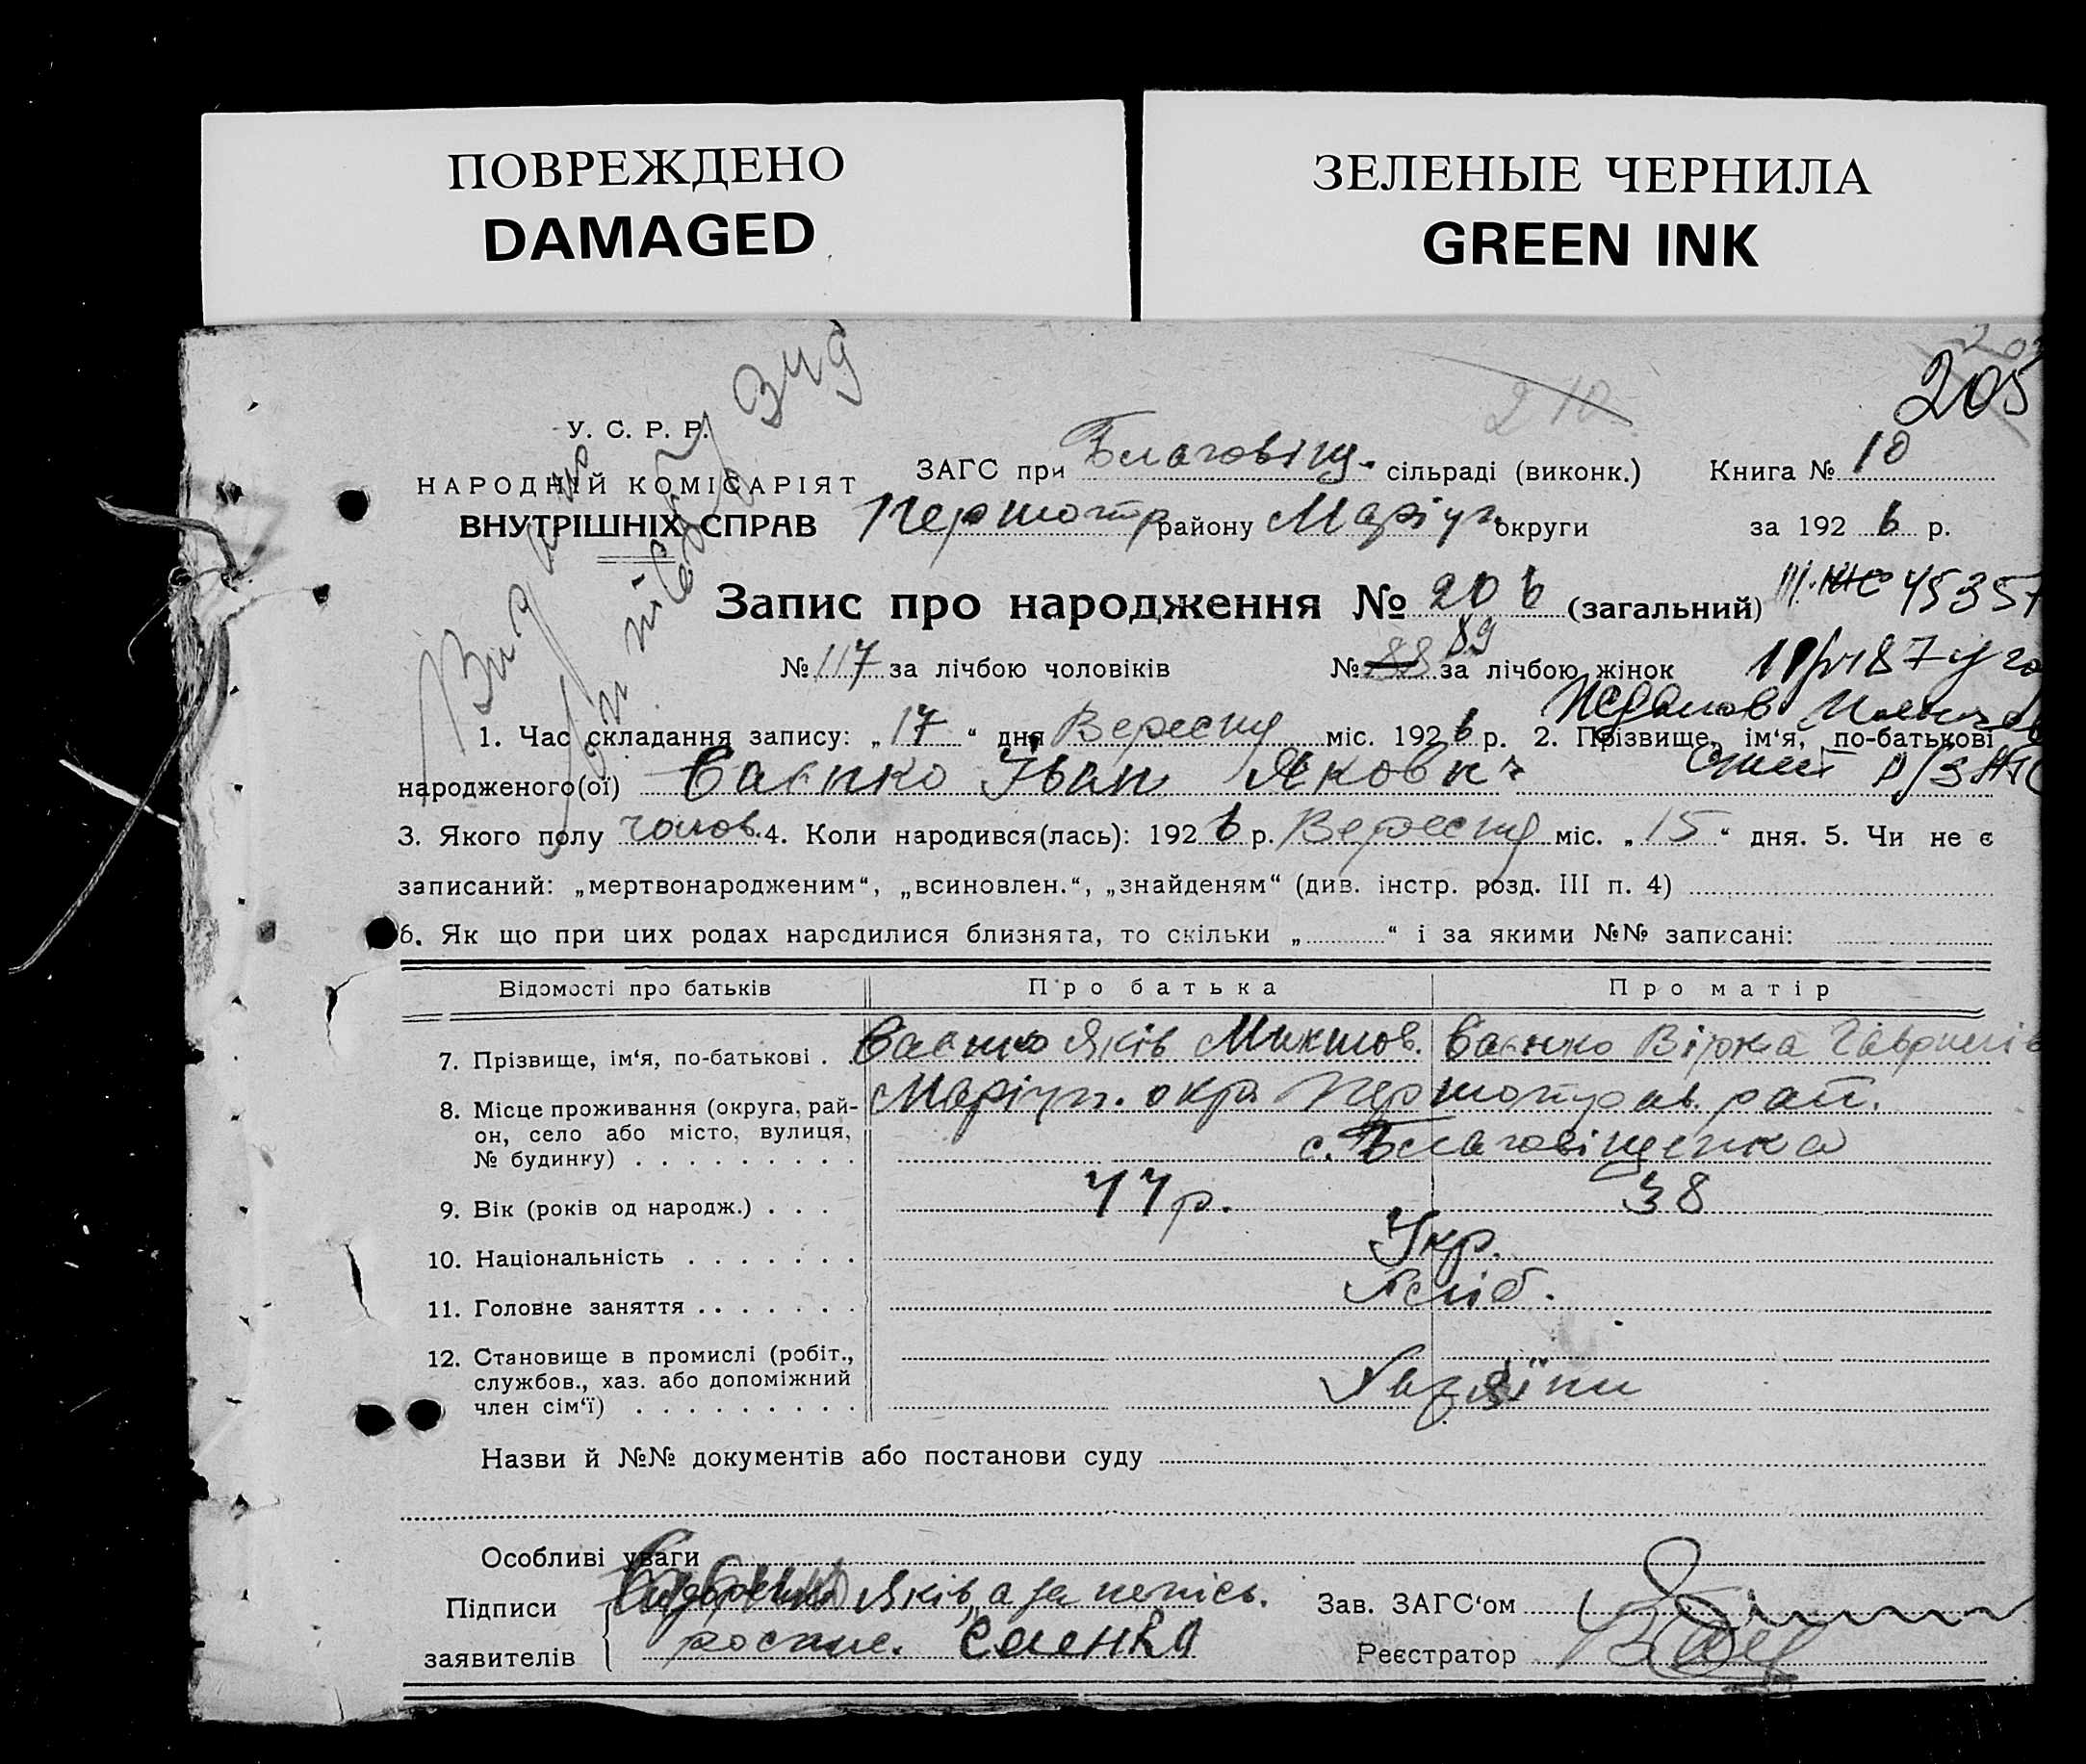 ПОВРЕЖДЕНО
DAMAGED
ЗЕЛЕНЫЕ ЧЕРНИЛА
GREEN INK
205
210
У. С. Р. Р.
НАРОДНІЙ КОМІСАРІЯТ
ВНУТРІШНІХ СПРАВ
ЗАГС при Благовіщ. сільраді (виконк.) Книга № 10
Першотр району Маріуп округи за 192 6 р.
Запис про народження № 206 (загальний)
№ 117 за лічбою чоловіків № 89 за лічбою жінок
1. Час складання запису: „ 17 “ дня Вересня міс. 192 6 р. 2. Прізвище, ім‘я, по-батькові
народженого(ої) Саєнко Іван Якович
3. Якого полу чолов. 4. Коли народився(лась): 192 6 р. Вересня міс. „ 15 “ дня. 5. Чи не є
записаний: „мертвонародженим“, „всиновлен.“, „знайденям“ (див. інстр. розд. III п. 4)
6. Як що при цих родах народилися близнята, то скільки „ “ і за якими №№ записані:
Відомості про батьків Про батька Про матір
7. Прізвище, ім‘я, по-батькові . Саєнко Яків Саєнко
8. Місце проживання (округа, рай- Маріуп. окр. Першотрав. рай.
он, село або місто, вулиця, с. Благовіщенка
№ будинку)
9. Вік (років од народж.) . . . 44 р. 38
10. Національність Укр.
11. Головне заняття Хліб.
12. Становище в промислі (робіт.,
службов., хаз. або допоміжний Хазяїни
член сім‘ї)
Назви й №№ документів або постанови суду
Особливі уваги
Підписи Яків, а за непись.
заявителів роспис. Саенко
Зав. ЗАГС‘ом
Реєстратор